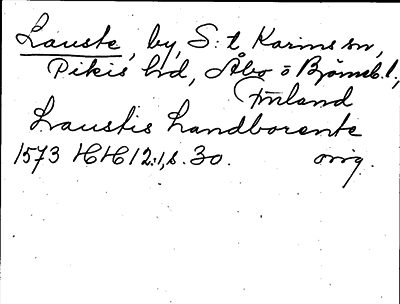 Lauste, by, S:t Karins sn,
Pikis hd, Åbo o Björneb. l.,
Finland
Laustis Landborente
1573 HH 12:1, s. 30. orig.